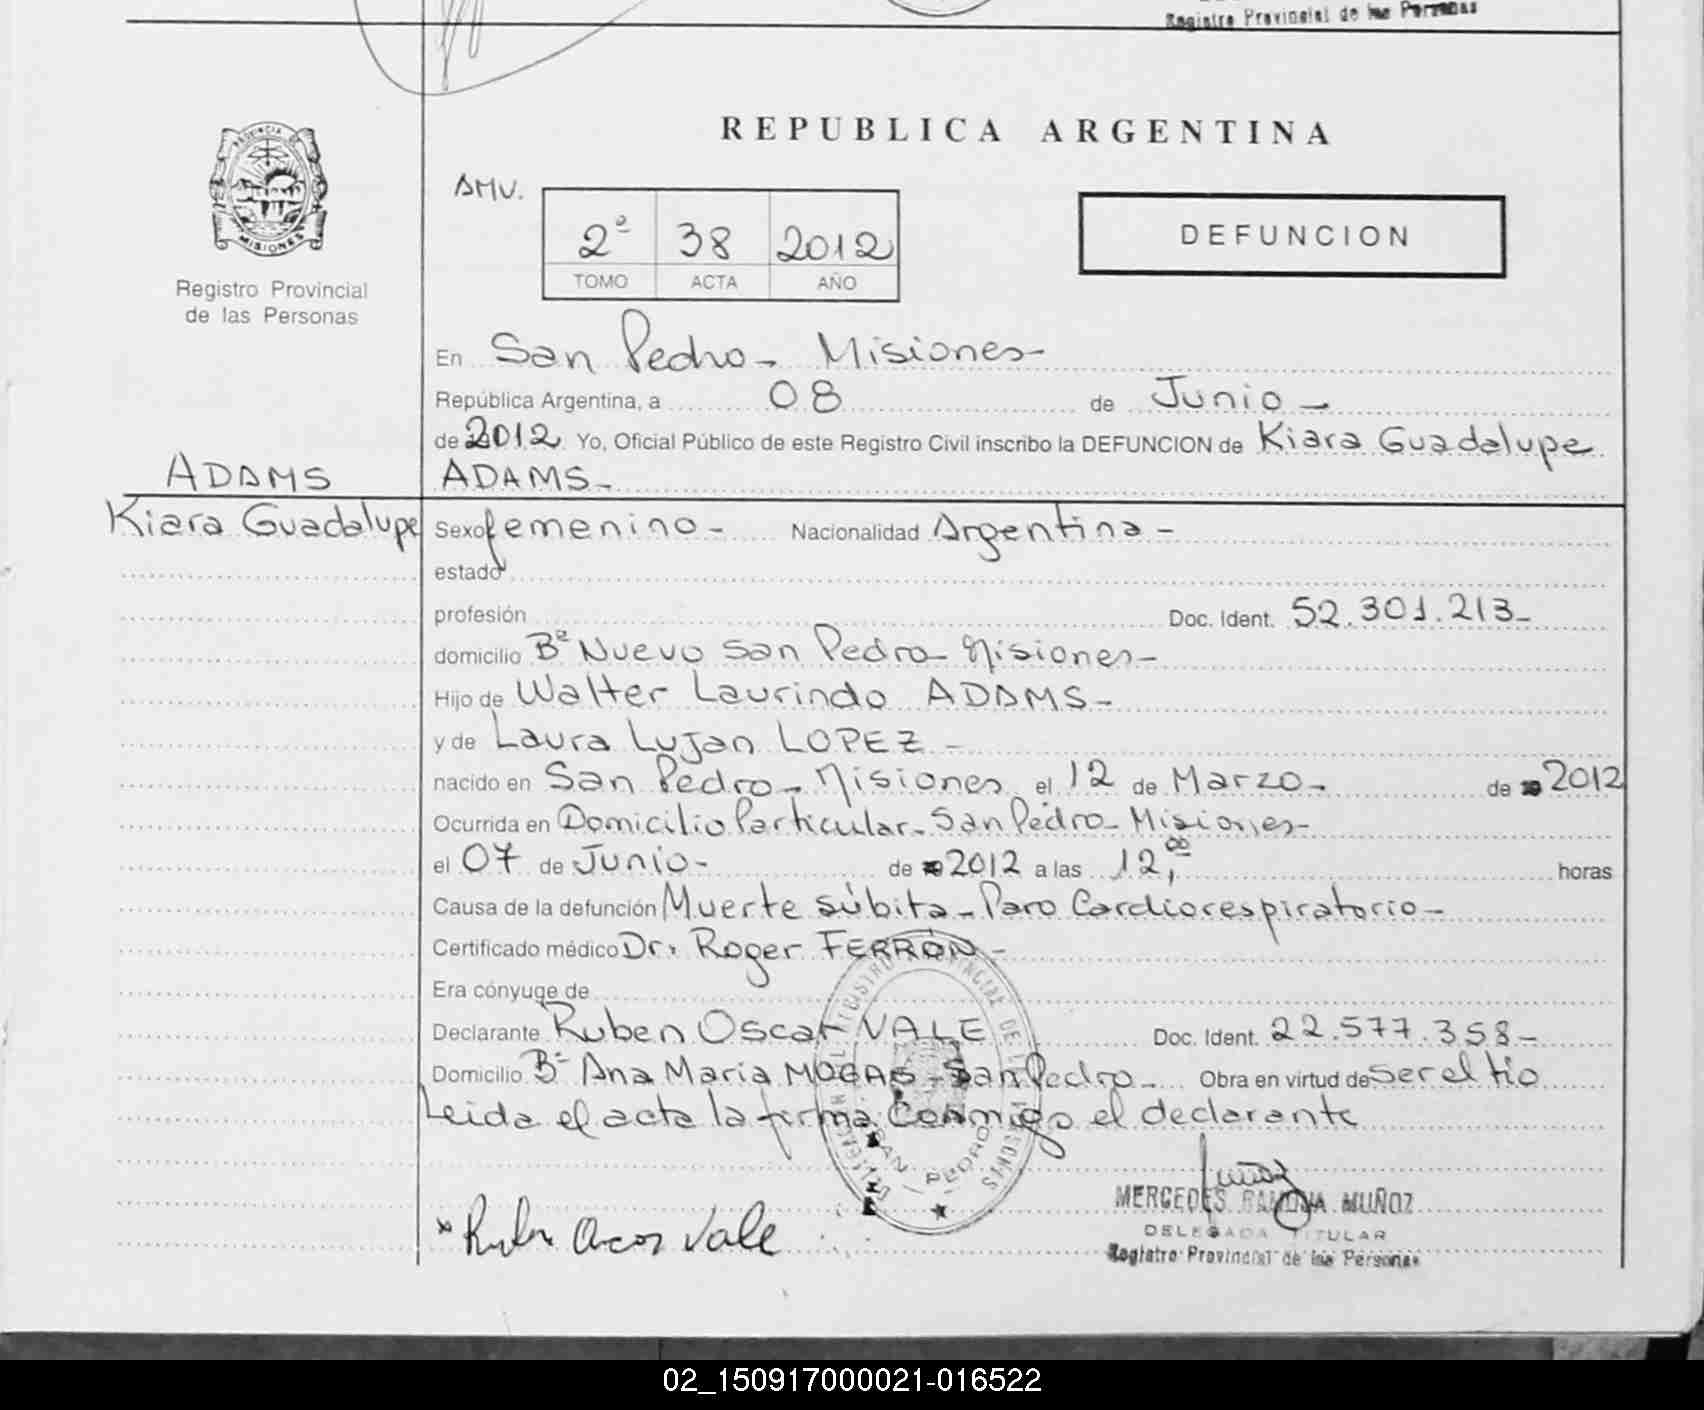 Registro Provincial de las Personas
REPUBLICA ARGENTINA
PROVINCIA
MISIONES
Registro Provincial
de las Personas
AMV.
2º 38 2012
TOMO ACTA AÑO
DEFUNCION
En San Pedro- Misiones-
República Argentina, a 08 de Junio-
de 2012 Yo, Oficial Público de este Registro Civil inscribo la DEFUNCION de Kiara Guadalupe
ADAMS ADAMS-
Kiara Guadalupe Sexo femenino- Nacionalidad Argentina-
estado
profesión Doc. Ident. 52.301.213-
domicilio Bº Nuevo San Pedro- Misiones-
Hijo de Walter Laurindo ADAMS-
y de Laura Lujan LOPEZ-
nacido en San Pedro- Misiones el 12 de Marzo- de 2012
Ocurrida en Domicilio Particular- San Pedro- Misiones-
el 07 de Junio- de 2012 a las 12,00 horas
Causa de la defunción Muerte súbita- Paro Cardiorespiratorio-
Certificado médico Dr: Roger FERRÓN-
Era cónyuge de
Declarante Ruben Oscar VALE Doc. Ident. 22.577.358-
Domicilio Bº Ana Maria MOGAS- San Pedro- Obra en virtud de ser el tio
Leida el acta la firma conmigo el declarante
SAN PEDRO
MERCEDES RAMONA MUÑOZ
DELEGADA TITULAR
Registro Provincial de las Personas
* Ruben Oscar Vale
02_150917000021-016522